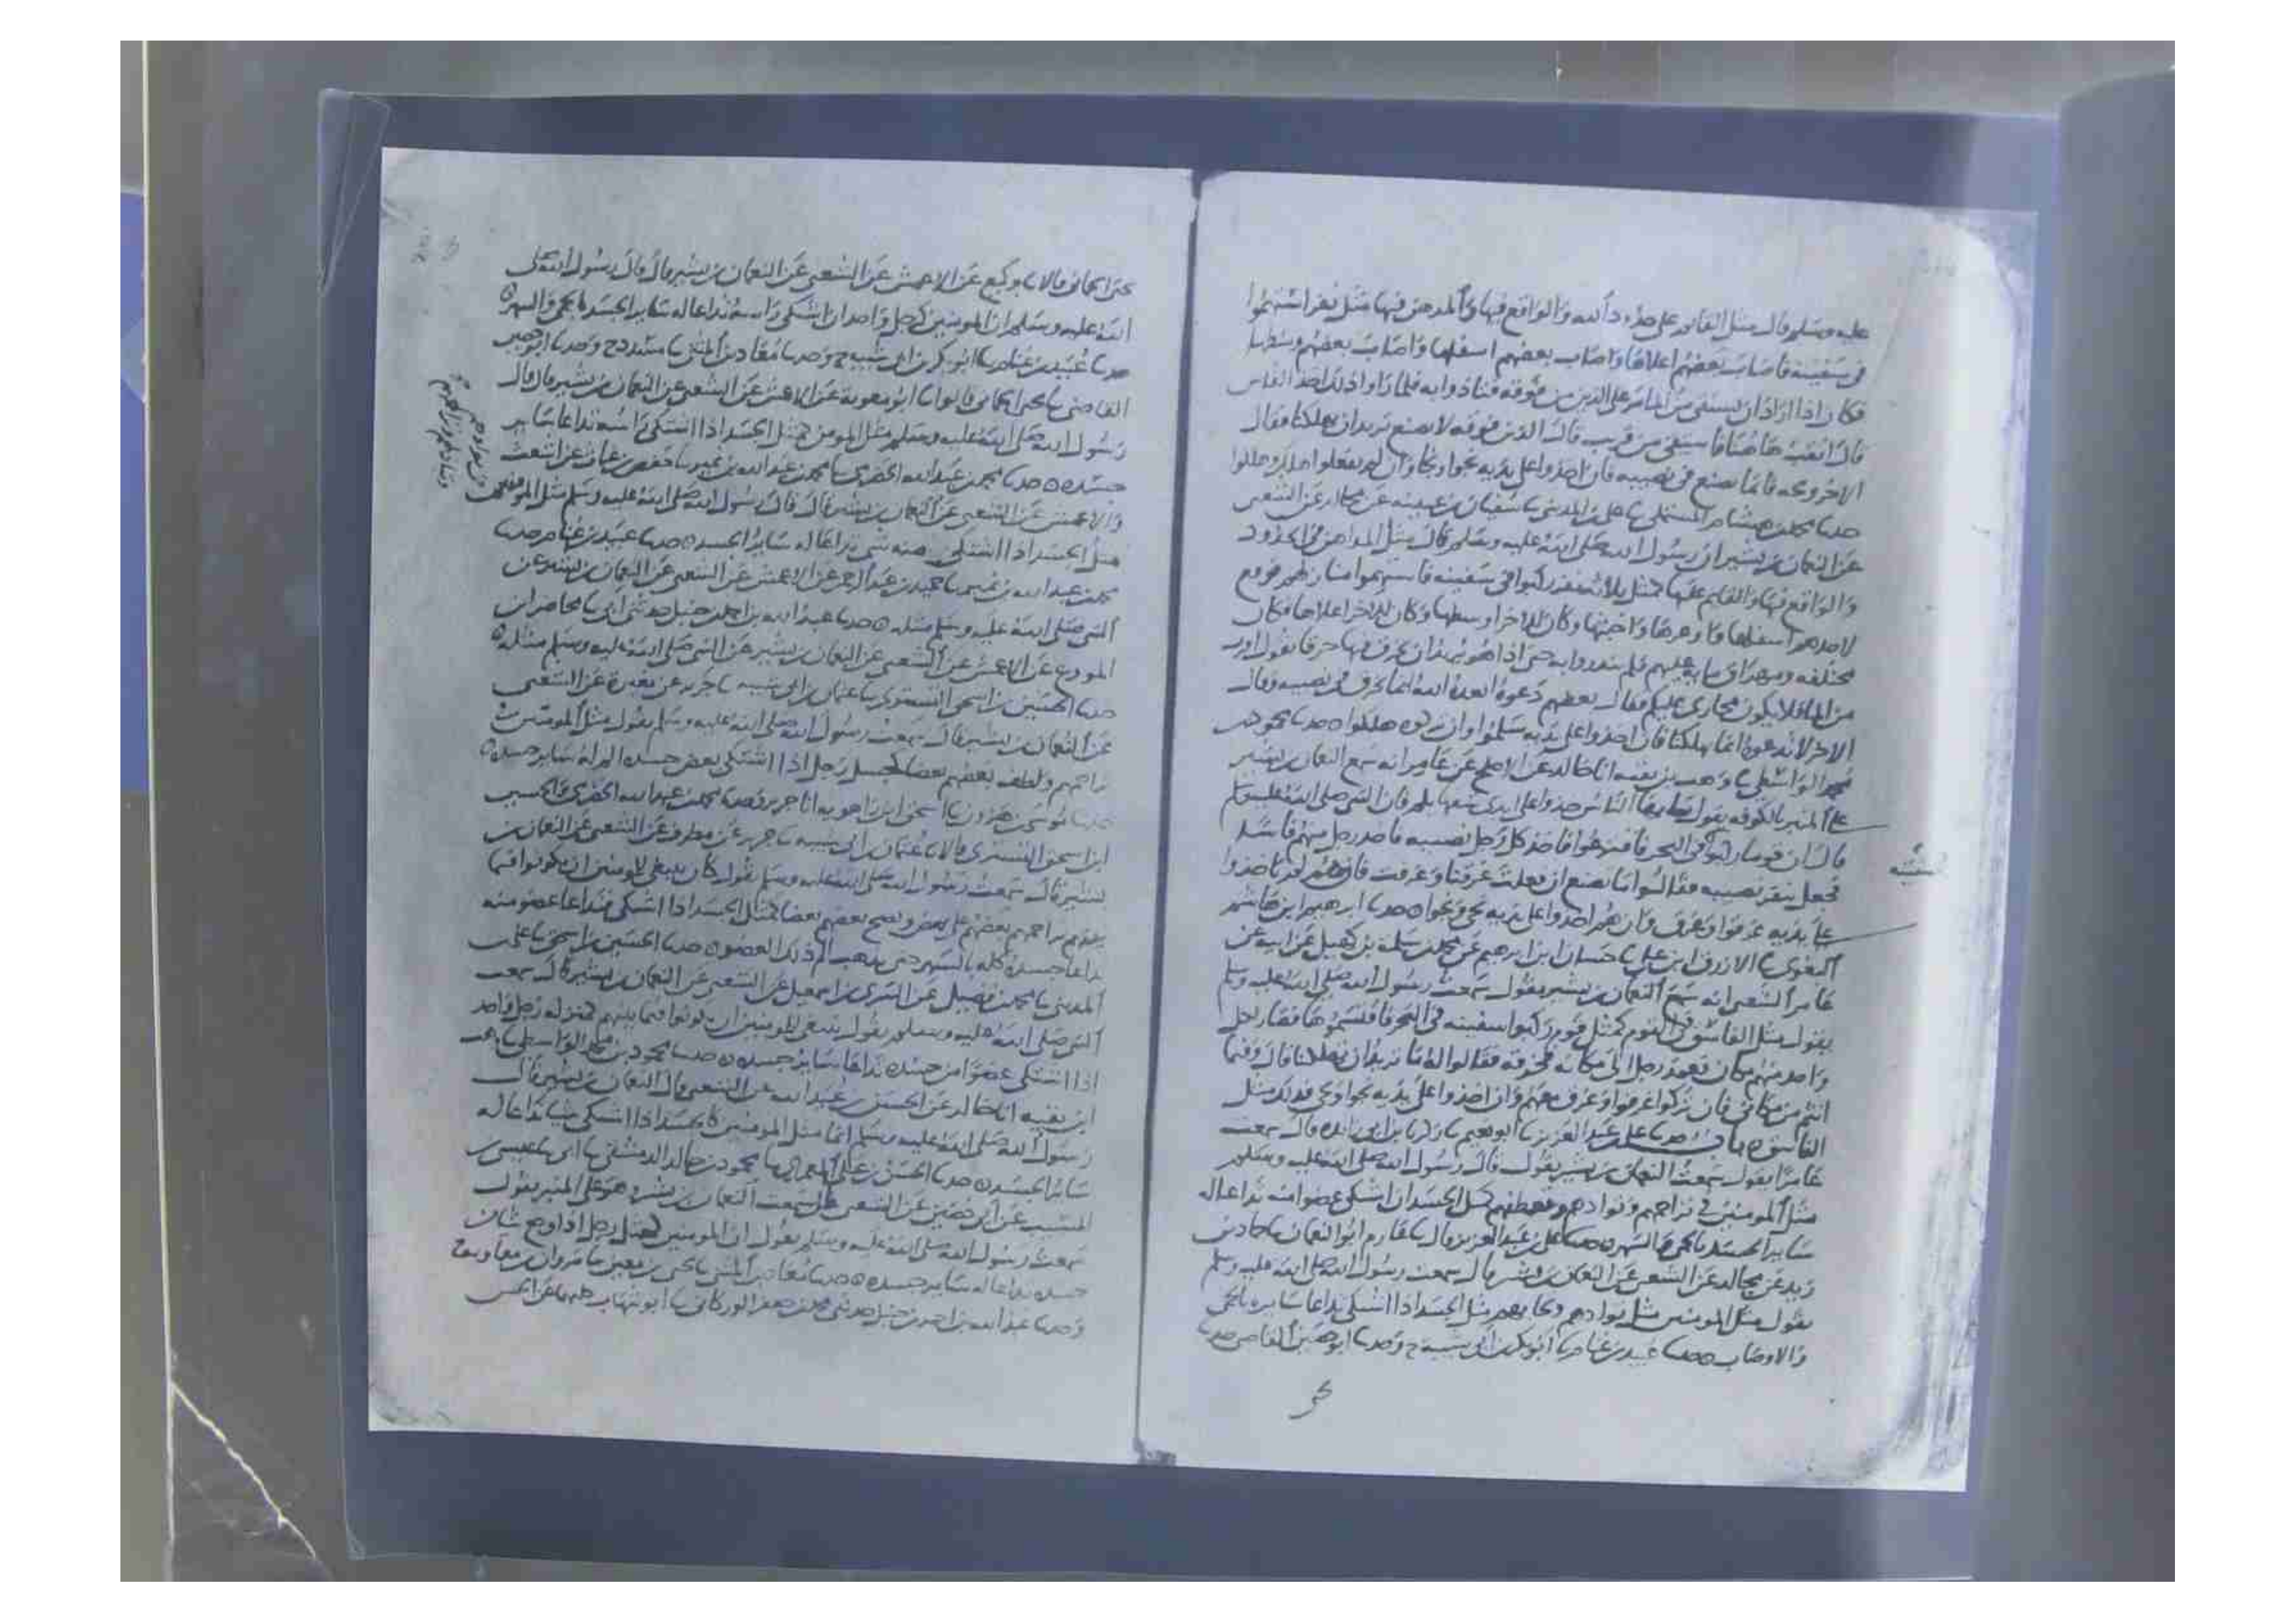 عليه وسلم قال مثل القائم على حدود الله والواقع فيها والمدهن فيها مثل نفر استهموا
في سفينة فاصاب بعضهم اعلاها واصاب بعضهم اسفلها واصاب بعضهم وسطها
فكان اذا اراد ان يستقي من الماء مر على الذين من فوقه فتاذوا به فلما راوا ذلك اخذ الفاس
قال انقب هاهنا فاستقي من قريب قال الذين فوقه لا تصنع تريد ان تهلكنا فقال
الاخر وحه فانما يصنع في نصيبه فان اخذوا على يديه نجوا ونجا وان لم يفعلوا هلك وهلكوا
حدنا محمد بن هشام المستملي نا علي بن المديني نا سفيان بن عيينه عن مجالد عن الشعبي
عن النعمان بن بشير ان رسول الله صلى الله عليه وسلم قال مثل المداهن في الحدود
والواقع فيها والقائم عليها كمثل ثلاثه نفر ركبوا في سفينه فاستهموا منازلهم فوقع
لاحدهم اسفلها واوعرها واخبثها وكان للاخر اوسطها وكان للاخر اعلاها فكان
مختلفه ومهراق مايه عليهم فلم يتعدوا به حتى اذا هو يريد ان يخرق فيها خرقا يقول اقرب
من الماء فلا يكون مجازي عليكم فقال بعضهم دعوه ابعده الله انما يخرق في نصيبه وقال
الاخر لا تدعوه انما يهلكنا فان اخذوا على يديه سلموا وان تركوه هلكوا ه حدنا محمود بن
محمد الواسطي نا وهب بن بقيه انا خالد عن الاجلح عن عامر انه سمع النعمان بن بشير
على المنبر بالكوفه يقول ايها الناس خذوا على ايدي سفهايكم فان النبي صلى الله عليه وسلم
قال ان قوما ركبوا في البحر فاقتسموا فاخذ كل رجل نصيبه فاخذ رجل منهم فاسا
فجعل ينقر نصيبه فقالوا ما تصنع ان فعلت غرقنا وغرقت فان هم لم ياخذوا
على يديه غرقوا وغرق وان هم اخذوا على يديه نجى ونجوا ه حدنا ابرهيم ابن هاشم
البغوي نا الازرق ابن علي نا حسان ابن ابرهيم عن محمد بن سلمة بن كهيل عن ابيه عن
عامر الشعبي انه سمع النعمان بن بشير يقول سمعت رسول الله صلى الله عليه وسلم
يقول مثل الفاسق في القوم كمثل قوم ركبوا سفينه في البحر فاقتسموها فصار لكل
واحد منهم مكان فعمد رجل الى مكانه فخرقه فقالوا له ما تريد ان تهلكنا قال وفيما
انتم من مكاني فان تركوا غرقوا وغرق معهم وان اخذوا على يديه نجوا ونجى فذلك مثل
الفاسق ه باب حدنا علي بن عبد العزيز نا ابو نعيم نا زكريا بن ابي زايده قال سمعت
عامرا يقول سمعت النعمان بن بشير يقول قال رسول الله صلى الله عليه وسلم
مثل المومنين في تراحمهم وتوادهم وتعاطفهم كمثل الجسد ان اشتكى عضوا منه تداعا له
ساير الجسد بالحمى والسهر ه حدنا علي بن عبد العزيز قال نا عارم ابو النعمان نا حماد بن
زيد عن مجالد عن الشعبي عن النعمان بن بشير قال سمعت رسول الله صلى الله عليه وسلم
يقول مثل المومنين مثل توادهم وتحابهم مثل الجسد اذا اشتكى تداعا سايره بالحمى
والاوصاب ه حدنا عبيد بن غنام نا ابو بكر بن ابي شيبه ح وحدنا ابو حصين القاضي حدنا
يحيى الحماني قالا نا وكيع عن الاعمش عن الشعبي عن النعمان بن بشير قال قال رسول الله صلى
الله عليه وسلم ان المومنين كرجل واحد ان اشتكى راسه تداعا له ساير الجسد بالحمى والسهر ه
حدنا عبيد بن غنام نا ابو بكر بن ابي شيبه ح وحدنا معاذ بن المثنى نا مسدد ح وحدنا ابو حصين
القاضي نا يحيى الحماني قالوا نا ابو معوية عن الاعمش عن الشعبي عن النعمان بن بشير قال قال
رسول الله صلى الله عليه وسلم مثل المومن كمثل الجسد اذا اشتكى راسه تداعا ساير
جسده ه حدنا محمد بن عبد الله الحضرمي نا محمد بن عبد الله بن نمير نا حفص بن غياث عن اشعث
والاعمش عن الشعبي عن النعمان بن بشير قال قال رسول الله صلى الله عليه وسلم مثل المومنين
مثل الجسد اذا اشتكى منه شي تداعا له ساير الجسد ه حدنا عبيد بن غنام حدنا
محمد بن عبد الله بن نمير نا حميد بن عبد الرحمن عن الاعمش عن الشعبي عن النعمان بن بشير عن
النبي صلى الله عليه وسلم مثله ه حدنا عبد الله بن احمد بن حنبل حدثني ابي نا محاضر ابن
المورع عن الاعمش عن الشعبي عن النعمان بن بشير عن النبي صلى الله عليه وسلم مثله ه
حدنا الحسين بن اسحق التستري نا عثمان بن ابي شيبه نا جرير عن مغيرة عن الشعبي
عن النعمان بن بشير قال سمعت رسول الله صلى الله عليه وسلم يقول مثل المومنين في
تراحمهم ولطف بعضهم بعضا كجسد رجل اذا اشتكى بعض جسده الم له ساير جسده ه
حدنا موسى بن هرون نا اسحق ابن راهويه انا جرير وحدنا محمد بن عبد الله الحضرمي والحسين
ابن اسحق التستري قالا نا عثمان بن ابي شيبه نا جرير عن مطرف عن الشعبي عن النعمان بن
بشير قال سمعت رسول الله صلى الله عليه وسلم يقول كان ينبغي للمومنين ان يكونوا فيما
بينهم يراحمهم بعضهم على بعض ونصح بعضهم بعضا كمثل الجسد اذا اشتكى تداعا عضو منه
تداعا جسده كله بالسهر حتى يذهب الم ذلك العضو ه حدنا الحسين بن اسحق نا علي بن
المديني نا محمد بن فضيل عن السري بن اسمعيل عن الشعبي عن النعمان بن بشير قال سمعت
النبي صلى الله عليه وسلم يقول ينبغي للمومنين ان يكونوا فيما بينهم كمنزلة رجل واحد
اذا اشتكى عضوا من جسده تداعا ساير جسده ه حدنا محمود بن محمد الواسطي نا وهب
ابن بقيه انا خالد عن الحسن بن عبيد الله عن الشعبي قال النعمان بن بشير قال
رسول الله صلى الله عليه وسلم انما مثل المومنين كالجسد اذا اشتكى شيا تداعا له
ساير الجسد ه حدنا الحسن بن علي المعمري نا محمود بن خالد الدمشقي نا ابي نا عيسى بن
المسيب عن ابي حصين عن الشعبي قال سمعت النعمان بن بشير هو على المنبر يقول
سمعت رسول الله صلى الله عليه وسلم يقول ان المومنين كمثل رجل اذا وجع شان
جسده تداعا له ساير جسده ه حدنا معاذ بن المثنى نا يحيى بن معين نا مروان بن معاويه ح
وحدنا عبد الله بن احمد بن حنبل حدثني محمد بن جعفر الوركاني نا ابو شهاب كلهما عن الحسن